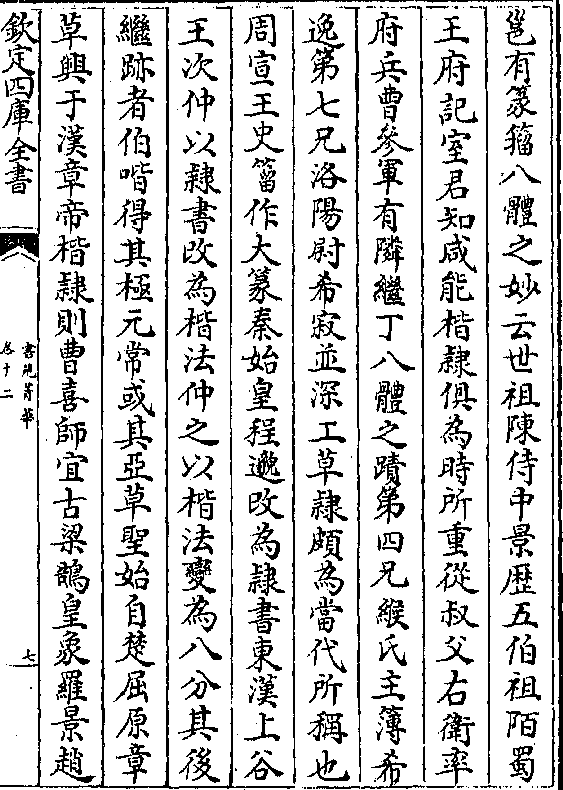 邕有篆籀八體之妙云世祖陳侍中景歴五伯祖陌蜀
王府記室君知咸能楷隷俱為時所重從叔父右衛率
府兵曹參軍有隣繼丁八體之蹟第四兄緱氏主簿希
逸第七兄洛陽尉希寂並深工草隷頗為當代所稱也
周宣王史籀作大篆秦始皇程邈改為隷書東漢上谷
王次仲以隷書改為楷法仲之以楷法變為八分其後
繼跡者伯喈得其極元常或其亞草聖始自楚屈原章
草興于漢章帝楷隷則曹喜師宜古梁鵠皇象羅景趙
欽定四庫全書
書苑菁華
卷十二
七